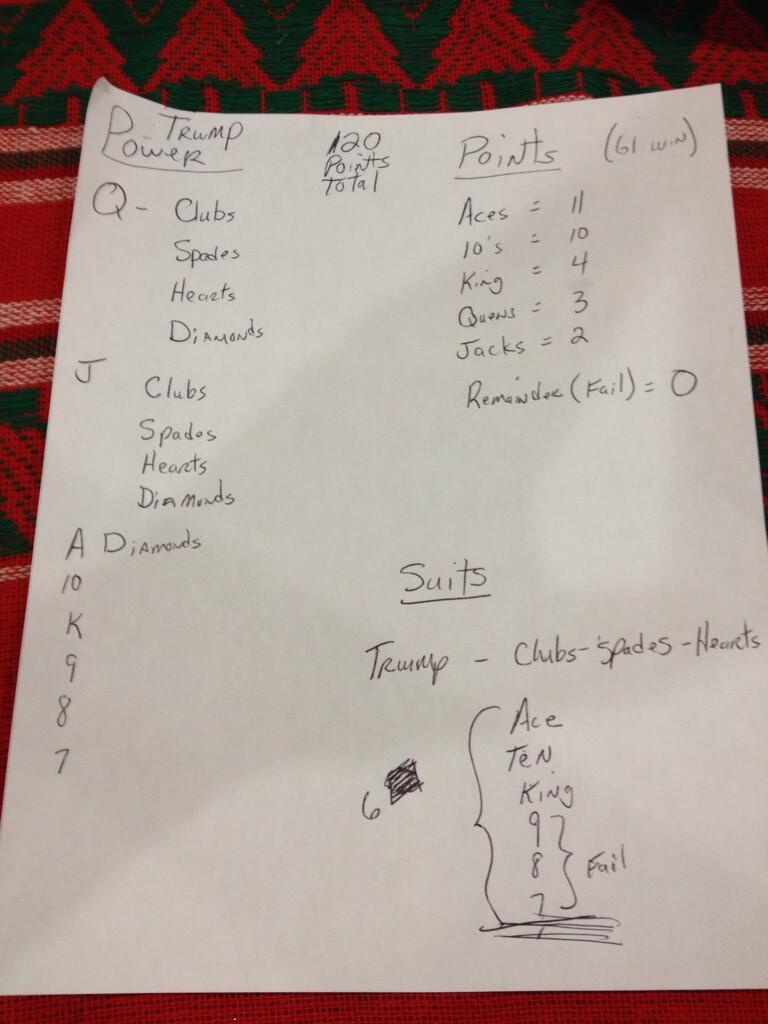 Trump
Power
Q - Clubs
Spades
Hearts
Diamonds
J
Clubs
Spades
Hearts
Diamonds
A Diamonds
10
K
9
8
7
120
Points
Total
Points (61 win)
Aces = 11
10's = 10
King = 4
Quens = 3
Jacks = 2
Remainder (Fail) = 0
Suits
Trump - Clubs-Spades-Hearts
Ace
Ten
King
9
8 Fail
7
6